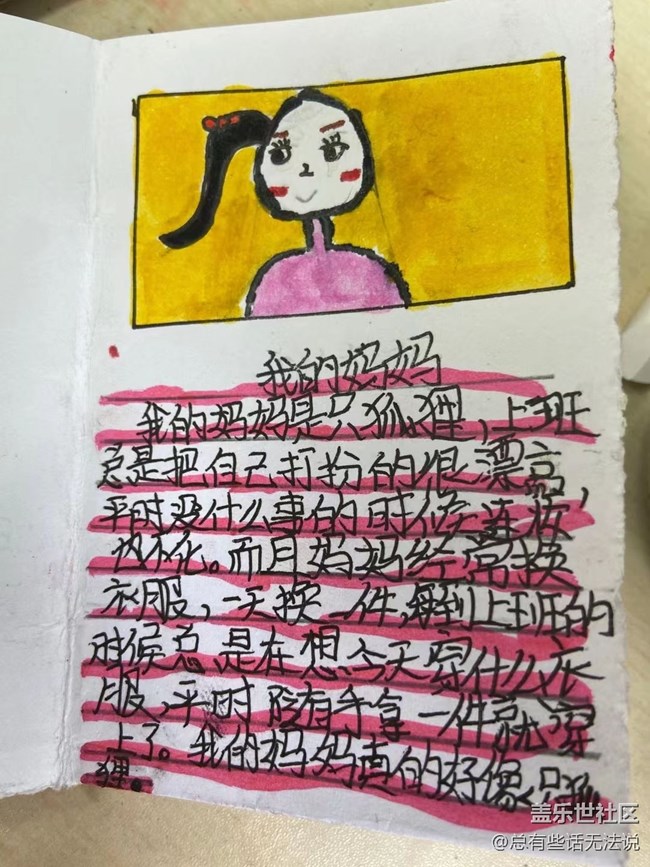 我的妈妈
我的妈妈是只狐狸,上班
总是把自己打扮的很漂亮,
平时没什么事的时候连妆
也不化。而且妈妈经常换
衣服,一天换一件,每到上班的
时候总是在想今天穿什么衣
服,平时随有手拿一件就穿
上了。我的妈妈真的好像只狐
狸。
盖乐世社区
@总有些话无法说